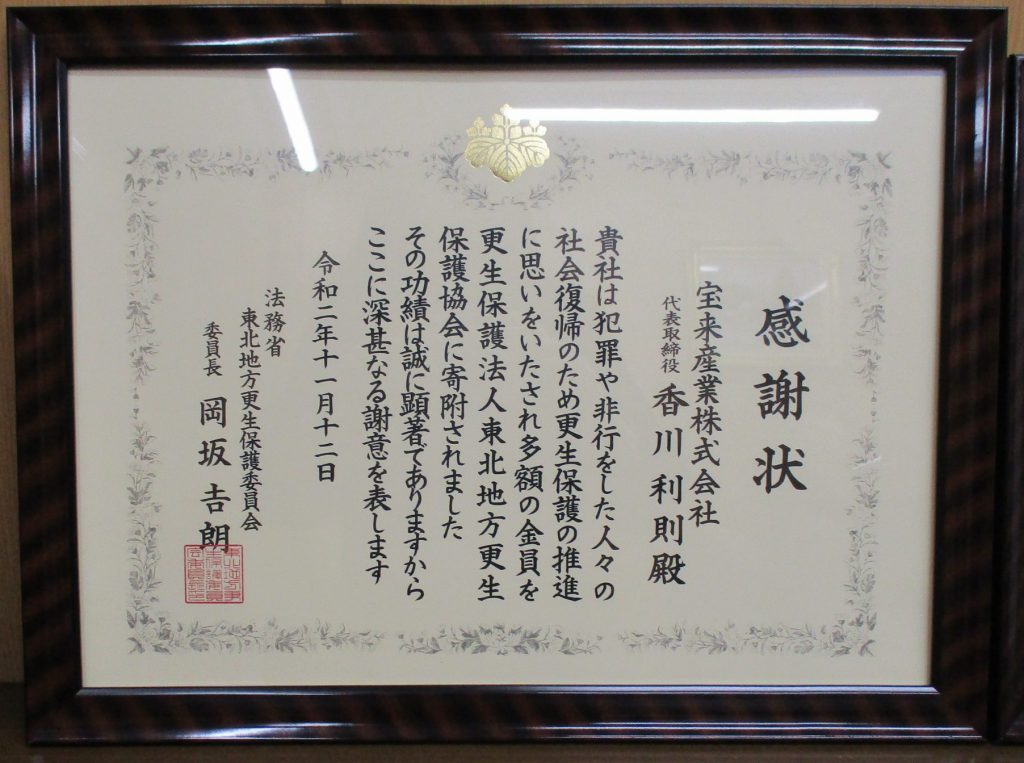 感謝状
宝来産業株式会社
代表取締役 香川利則殿
貴社は犯罪や非行をした人々の
社会復帰のため更生保護の推進
に思いをいたされ多額の金員を
更生保護法人東北地方更生
保護協会に寄附されました
その功績は誠に顕著でありますから
ここに深甚なる謝意を表します
令和二年十一月十二日
法務省
東北地方更生保護委員会
委員長 岡坂吉朗